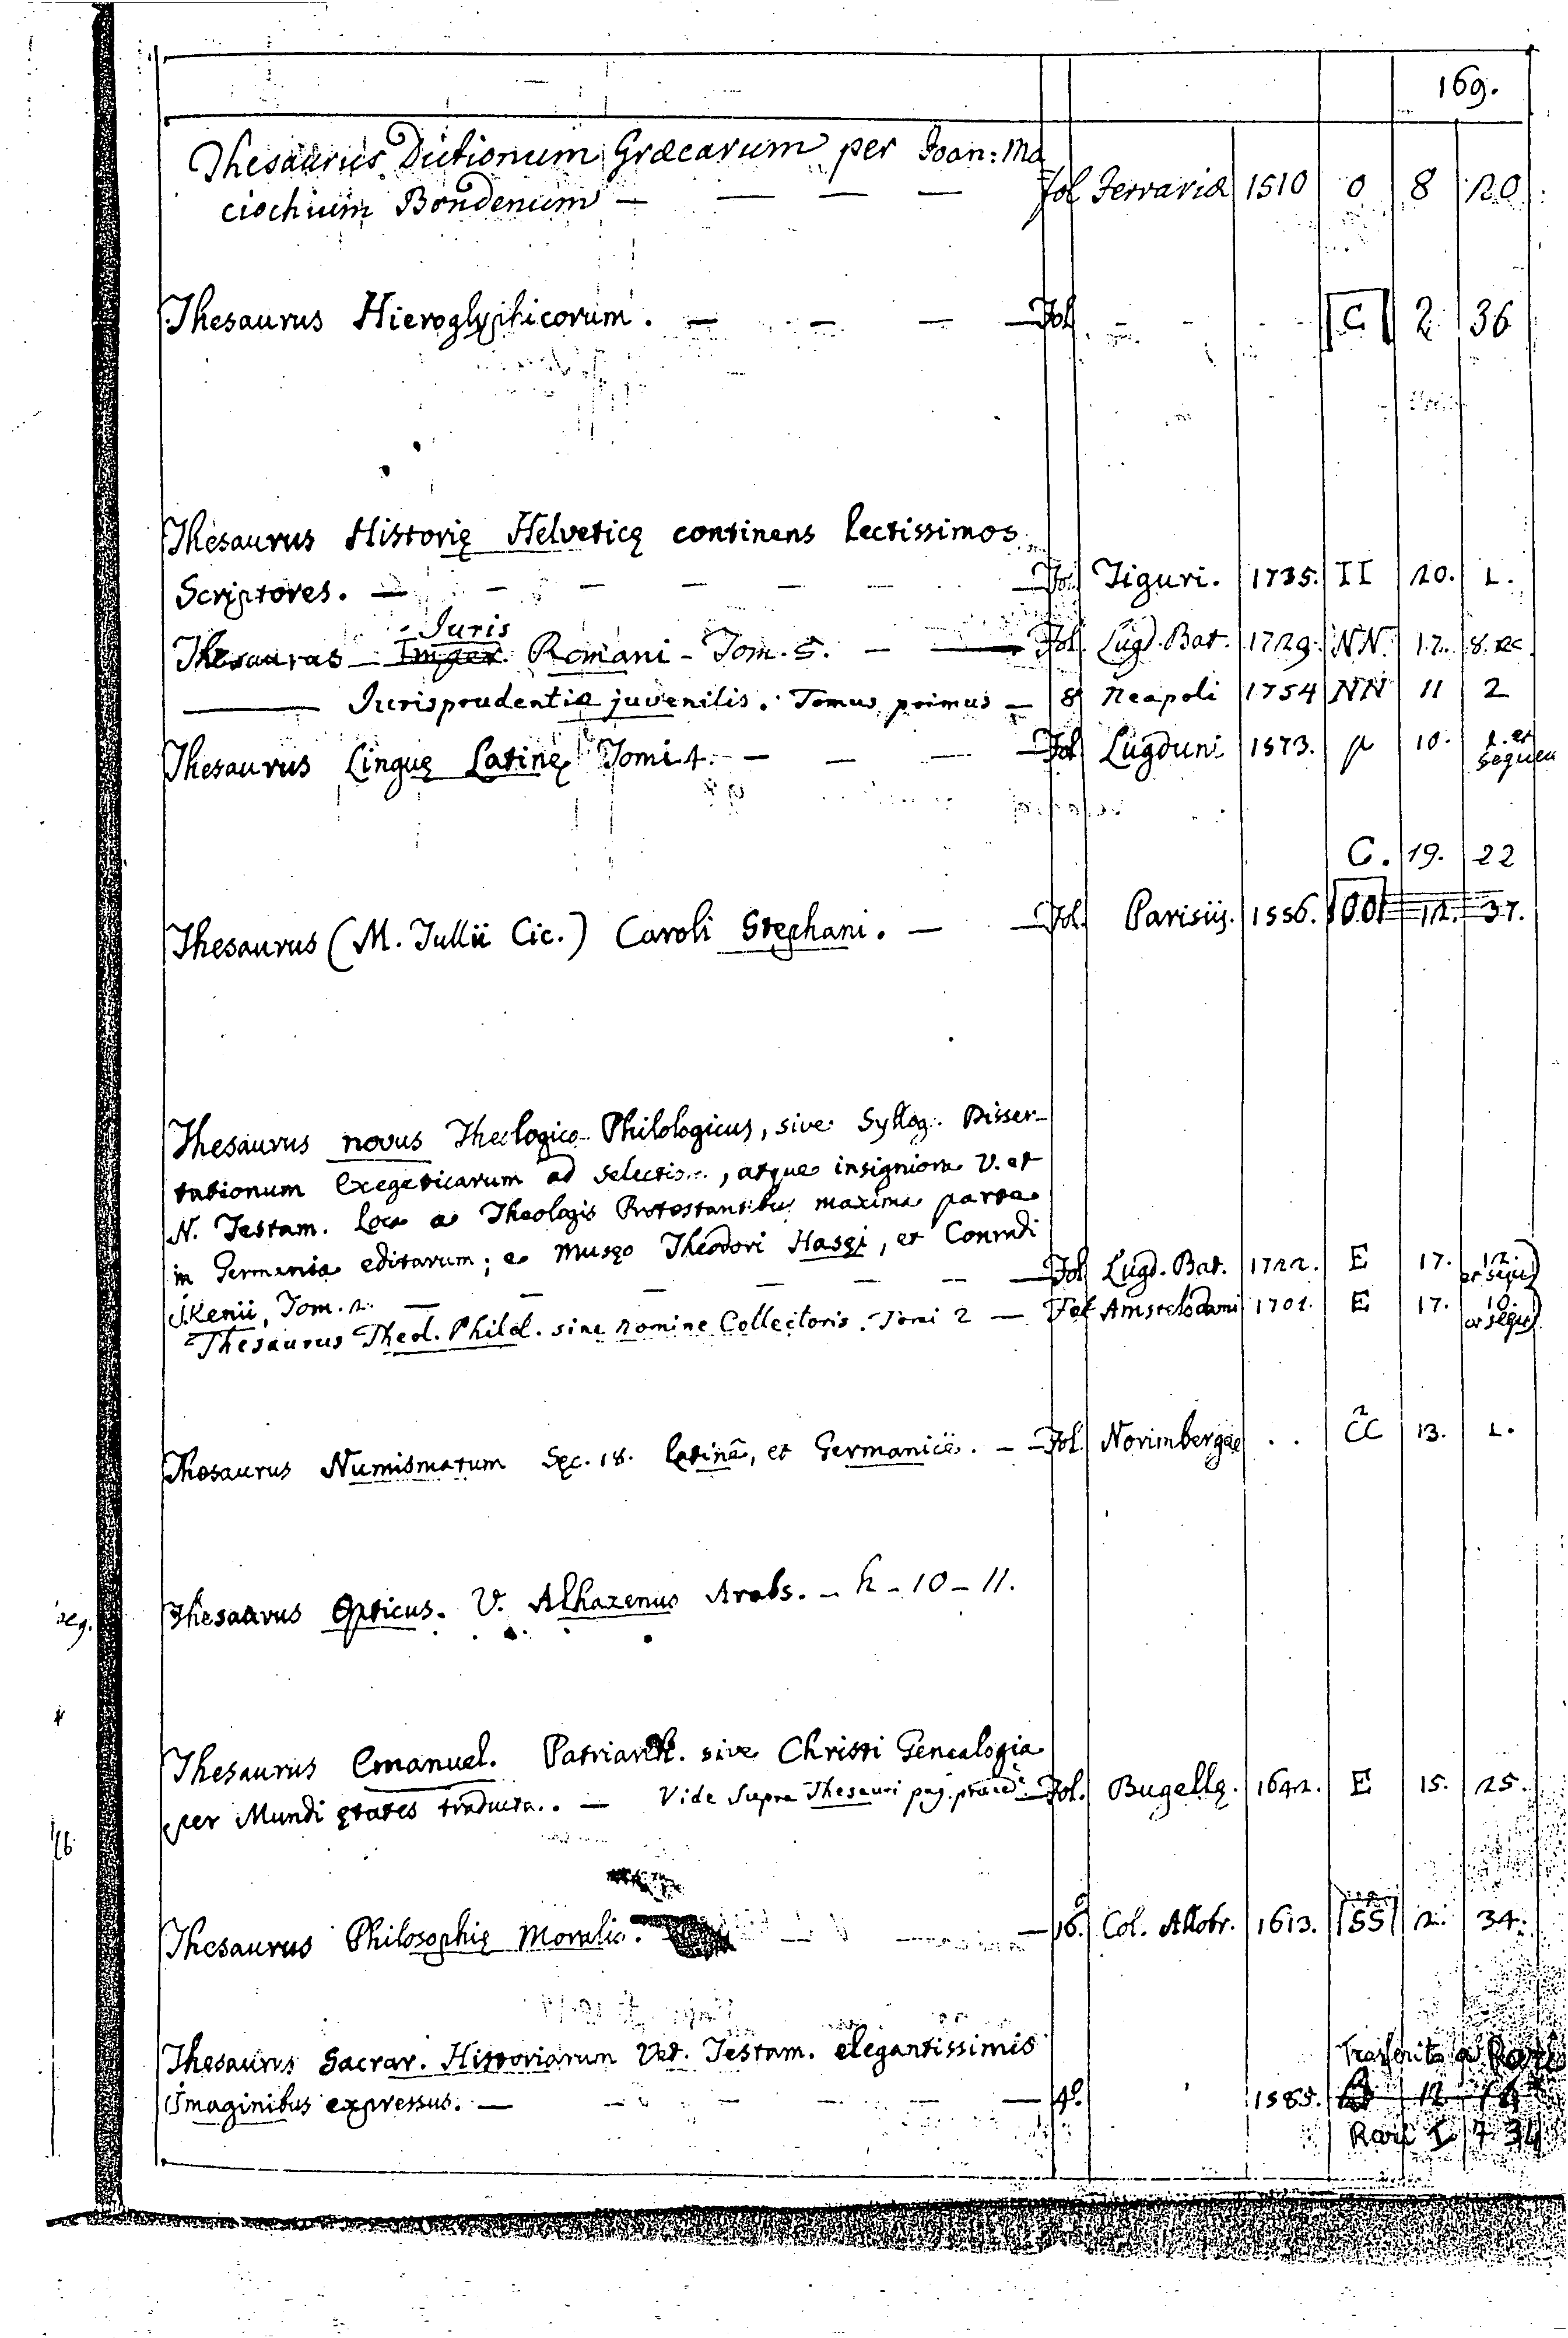 169.
Thesaurus Dictionum Græcarum per Joan: Ma
ciochium Bondenum — — — — fol Ferrariæ 1510 O 8 20
Thesaurus Hieroglyphicorum. — — — — Fol - - - C 2 36
Thesaurus Historię Helveticę continens lectissimos
Scriptores. — — — — — — Fol Tiguri. 1735. II 20. 1.
Juris
Thesaurus — Romani - Tom. 5. — — Fol. Lugd. Bat. 1729. NN. 17. 8.
——— Jurisprudentiæ juvenilis. Tomus primus — 8 Neapoli 1754 NN 11 2
Thesaurus Linguę Latinę Tomi 4. — — — — Fol Lugduni 1573. 10. 1. et
sequen
C. 19. 22
Thesaurus (M. Tullii Cic.) Caroli Stephani. — — Fol. Parisiis. 1556. OO 12. 37.
Thesaurus novus Theologico-Philologicus, sive Syllog. Disser-
tationum Exegeticarum ad selectis.., atque insigniora V. et
N. Testam. Loca a Theologis Protestantibus maxima parte
in Germania editarum; e Musęo Theodori Hasęi, et Conradi
Ikenii, Tom. 2. — — — — — — Fol Lugd. Bat. 1722. E 17. 12.
et seque)
Thesaurus Theol. Philol. sine nomine Collectoris. Tomi 2 — Fol Amstelodami 1701. E 17. 10.
et seque)
Thesaurus Numismatum Sęc. 18. latinê, et Germanicè. — — Fol. Norimbergæ . . CC 13. 1.
Thesaurus Opticus. V. Alhazenus Arabs. — h - 10 - 11.
seg.
Thesaurus Emanuel. Patriarch. sive Christi Genealogia
per Mundi ętates traducta. . — Vide Supra Thesauri pag. præced. — Fol. Bugellę. 1642. E 15. 25.
Thesaurus Philosophię Moralis. — 16.º Col. Allobr. 1613. SS 2. 34.
Thesaurus Sacrar. Historiarum Vet. Testam. elegantissimis
Trasferito a Rari
Imaginibus expressus. — — — — — — 4.º 1585. 12
Rari I 7 34